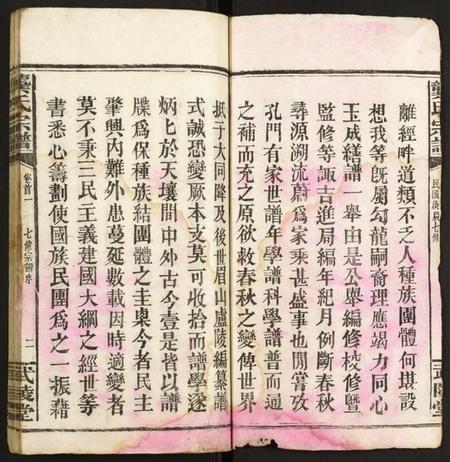 龔氏宗譜
民國庚辰七修
武陵堂
離經畔道類不乏人種族團體何堪設
想我等既屬勾龍嗣裔理應竭力同心
玉成繕譜一舉由是公舉編修校修暨
監修等諏吉進局編年紀月例斷春秋
尋源溯流蔚為家乘甚盛事也聞嘗攷
孔門有家世譜年學譜科學譜普而通
之補而充之原欲救春秋之變俾世界
抵于大同降及後世眉山廬陵編纂譜
式誠恐變厥本支莫可收拾而譜學遂
炳匕於天壤間中外古今壹是皆以譜
牒為保種族結團體之圭臬今者民主
肇興內難外患蔓延數載因時適變者
莫不秉三民主義建國大綱之經世等
書悉心籌劃使國族民團為之一振藉
龔氏宗譜
卷首一
七修宗譜序
二
武陵堂